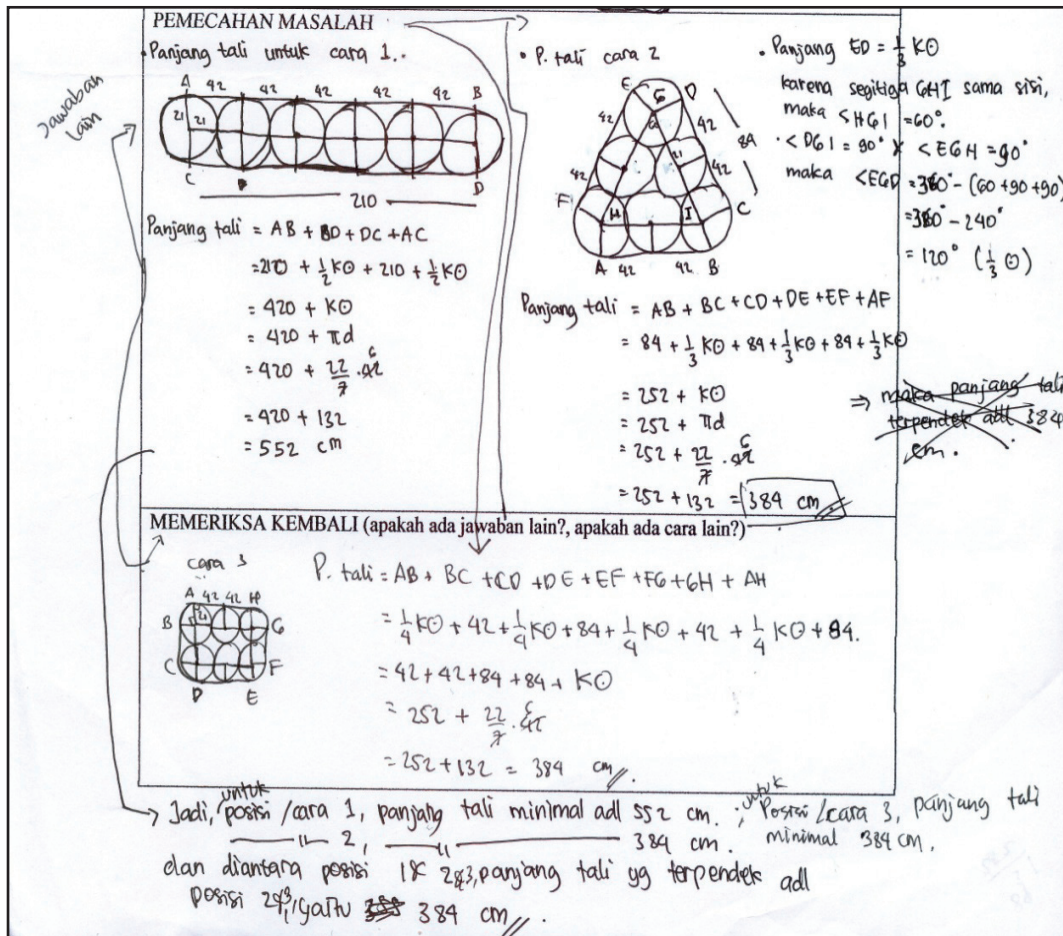 PEMECAHAN MASALAH
Jawaban
lain
• Panjang tali untuk cara 1..
A 42 42 42 42 42 B
21 21
C D
210
Panjang tali = AB + BD + DC + AC
= 210 + 1/2 K⊙ + 210 + 1/2 K⊙
= 420 + K⊙
= 420 + πd
= 420 + 22/7 . 42 6
= 420 + 132
= 552 cm
• P. tali cara 2
E G D
42 42
84
21
42 42
F H I C
A 42 42 B
Panjang tali = AB + BC + CD + DE + EF + AF
= 84 + 1/3 K⊙ + 84 + 1/3 K⊙ + 84 + 1/3 K⊙
= 252 + K⊙
= 252 + πd
= 252 + 22/7 . 42 6
= 252 + 132 = 384 cm
• Panjang ED = 1/3 K⊙
karena segitiga GHI sama sisi,
maka <HGI = 60°.
• <DGI = 90° & <EGH = 90°
maka <EGD = 360° - (60 + 90 + 90)
= 360° - 240°
= 120° (1/3 ⊙)
⇒ maka panjang tali
terpendek adl 384
cm.
MEMERIKSA KEMBALI (apakah ada jawaban lain?, apakah ada cara lain?)
cara 3
A 42 42 H
B 21 G
C F
D E
P. tali = AB + BC + CD + DE + EF + FG + GH + AH
= 1/4 K⊙ + 42 + 1/4 K⊙ + 84 + 1/4 K⊙ + 42 + 1/4 K⊙ + 84.
= 42 + 42 + 84 + 84 + K⊙
= 252 + 22/7 . 42 6
= 252 + 132 = 384 cm
Jadi, untuk posisi / cara 1, panjang tali minimal adl 552 cm. ; untuk Posisi / cara 3, panjang tali
—— 〃 — 2, —— 〃 —— 384 cm. minimal 384 cm.
dan diantara posisi 1 & 2 & 3, panjang tali yg terpendek adl
posisi 2 & 3, yaitu 384 cm